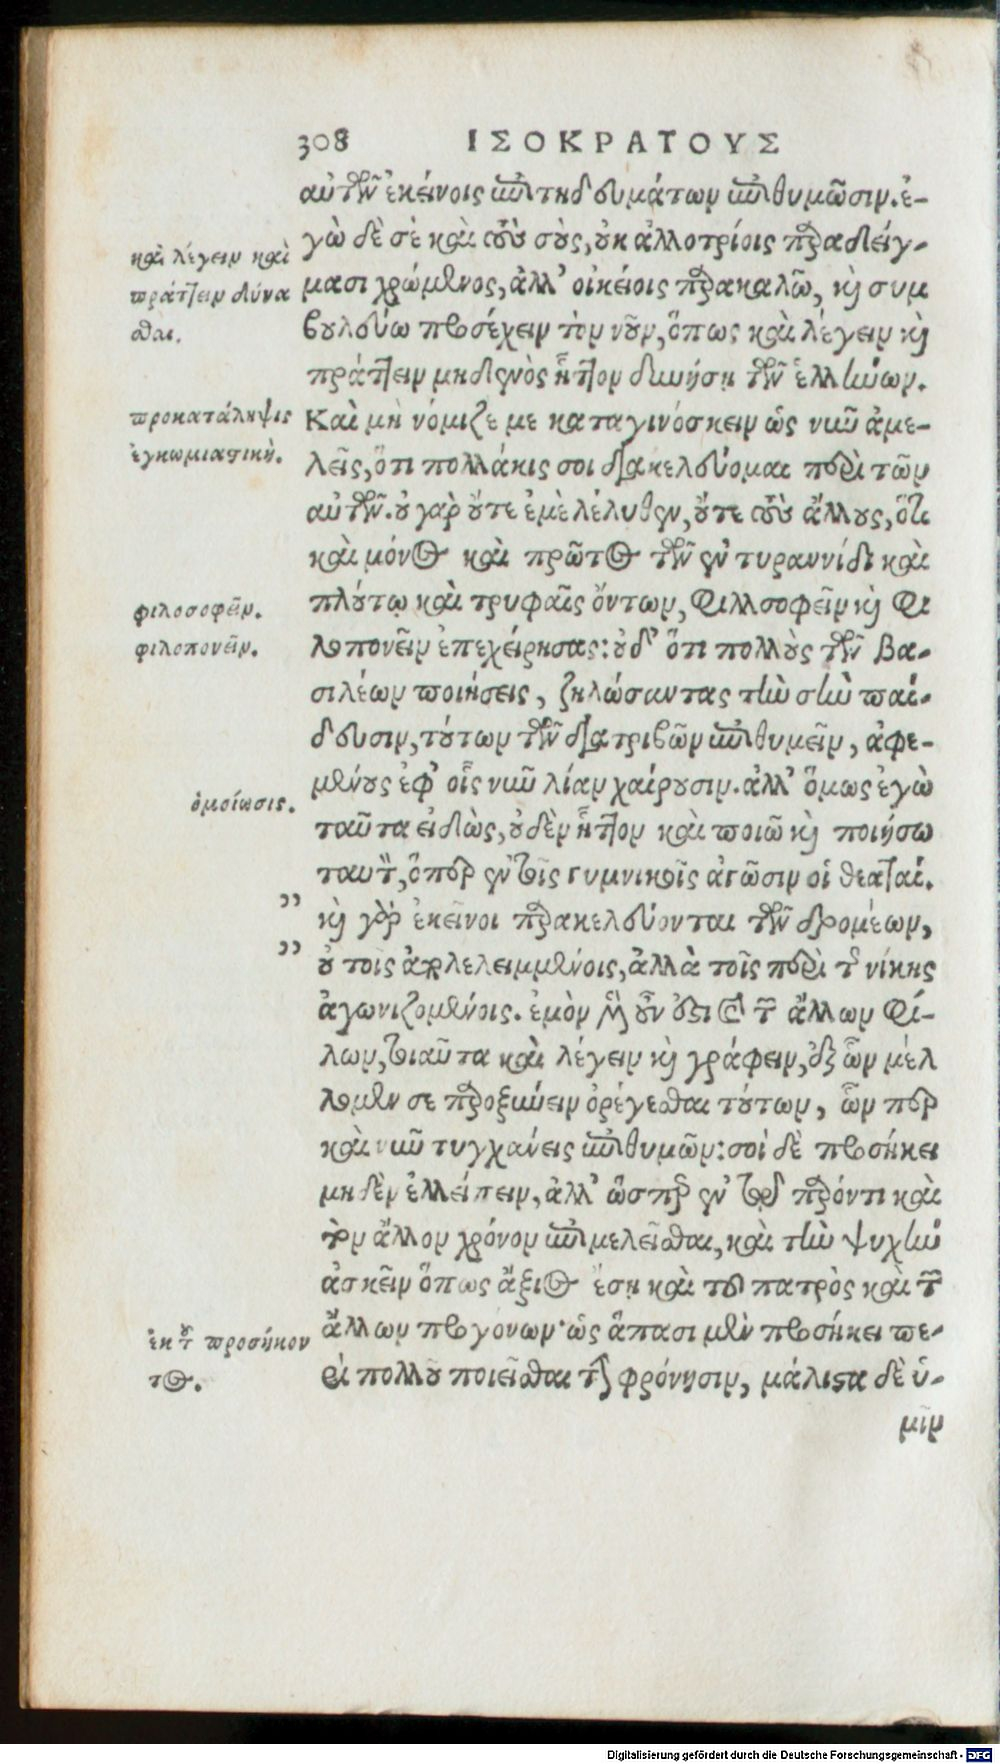 308 ΙΣΟΚΡΑΤΟΥΣ
αὐτῶν ἐκείνοις ἐπιτηδευμάτων ἐπιθυμῶσιν. ἐ-
γὼ δὲ σὲ καὶ τοὺς σοὺς, οὐκ ἀλλοτρίοις παραδείγ-
μασι χρώμενος, ἀλλ' οἰκείοις παρακαλῶ, καὶ συμ
βουλεύω προσέχειν τὸν νοῦν, ὅπως καὶ λέγειν καὶ
πράττειν μηδενὸς ἧττον δυνήσῃ τῶν ἑλλήνων.
Καὶ μὴ νόμιζέ με καταγινόσκειν ὡς νῦν ἀμε-
λεῖς, ὅτι πολλάκις σοι διακελεύομαι περὶ τῶν
αὐτῶν. οὐ γαρ οὔτε ἐμὲ λέλυθεν, οὔτε τοὺς ἄλλους, ὅτι
καὶ μόνος καὶ πρῶτος τῶν ἐν τυραννίδι καὶ
πλούτῳ καὶ τρυφαῖς ὄντων, φιλοσοφεῖν καὶ φι
λοπονεῖν ἐπεχείρησας: οὐδ' ὅτι πολλοὺς τῶν βα-
σιλέων ποιήσεις, ζηλώσαντας τὴν σὴν παί-
δευσιν, τούτων τῶν διατριβῶν ἐπιθυμεῖν, ἀφε-
μένους ἐφ' οἷς νῦν λίαν χαίρουσιν. ἀλλ' ὅμως ἐγὼ
ταῦτα εἰδὼς, οὐδὲν ἧττον καὶ ποιῶ καὶ ποιήσω
ταυτὸ, ὅπερ ἐν τοῖς γυμνικοῖς ἀγῶσιν οἱ θεαταί.
" καὶ γὰρ ἐκεῖνοι παρακελεύονται τῶν δρομέων,
" οὐ τοῖς ἀπολελειμμένοις, ἀλλὰ τοῖς περὶ τῆς νίκης
ἀγωνιζομένοις. ἐμὸν μὲν οὖν ἐστι καὶ τῶν ἄλλων φί-
λων, τοιαῦτα καὶ λέγειν καὶ γράφειν, ἐξ ὧν μέλ
λομεν σε παροξυνεῖν ὀρέγεσθαι τούτων, ὧν περ
καὶ νῦν τυγχάνεις ἐπιθυμῶν: σοὶ δὲ προσήκει
μηδὲν ἐλλείπειν, ἀλλ' ὥσπερ ἐν τῷ παρόντι καὶ
τὸν ἄλλον χρόνον ἐπιμελεῖσθαι, καὶ τὴν ψυχὴν
ἀσκεῖν ὅπως ἄξιος ἔσῃ καὶ τοῦ πατρὸς καὶ τῶν
ἄλλων προγόνων· ὡς ἅπασι μὲν προσήκει πε-
ρὶ πολλοῦ ποιεῖσθαι τὴν φρόνησιν, μάλιστα δὲ ὑ-
μῖν
καὶ λέγειν καὶ
πράττειν δύνα
σθαι.
προκατάληψις
ἐγκωμιαστική.
φιλοσοφεῖν.
φιλοπονεῖν.
ὁμοίωσις.
ἐκ τοῦ προσήκον
τος.
Digitalisierung gefördert durch die Deutsche Forschungsgemeinschaft - DFG